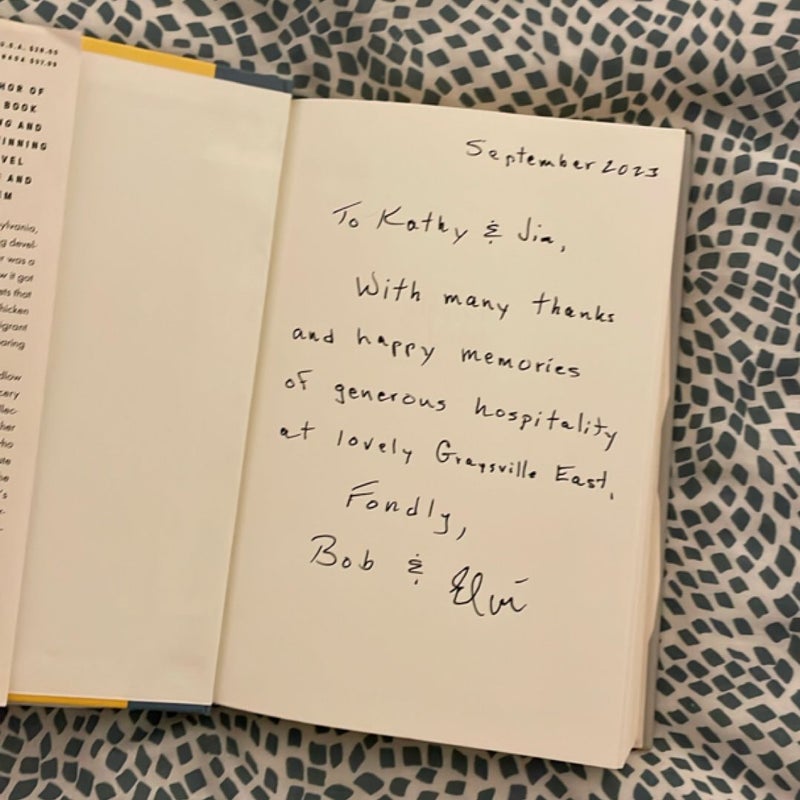 U.S.A. $28.00
HOR OF
BOOK
NG AND
INNING
VEL
AND
EM
sylvania,
g devel-
r was a
w it got
ets that
hicken
igrant
oaring
dlow
cery
llec-
her
ho
ute
he
's
September 2023
To Kathy & Jim,
With many thanks
and happy memories
of generous hospitality
at lovely Graysville East.
Fondly,
Bob & Elvi